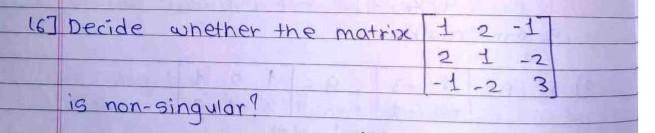 16] Decide whether the matrix [1 2 -1
2 1 -2
-1 -2 3]
is non-singular?